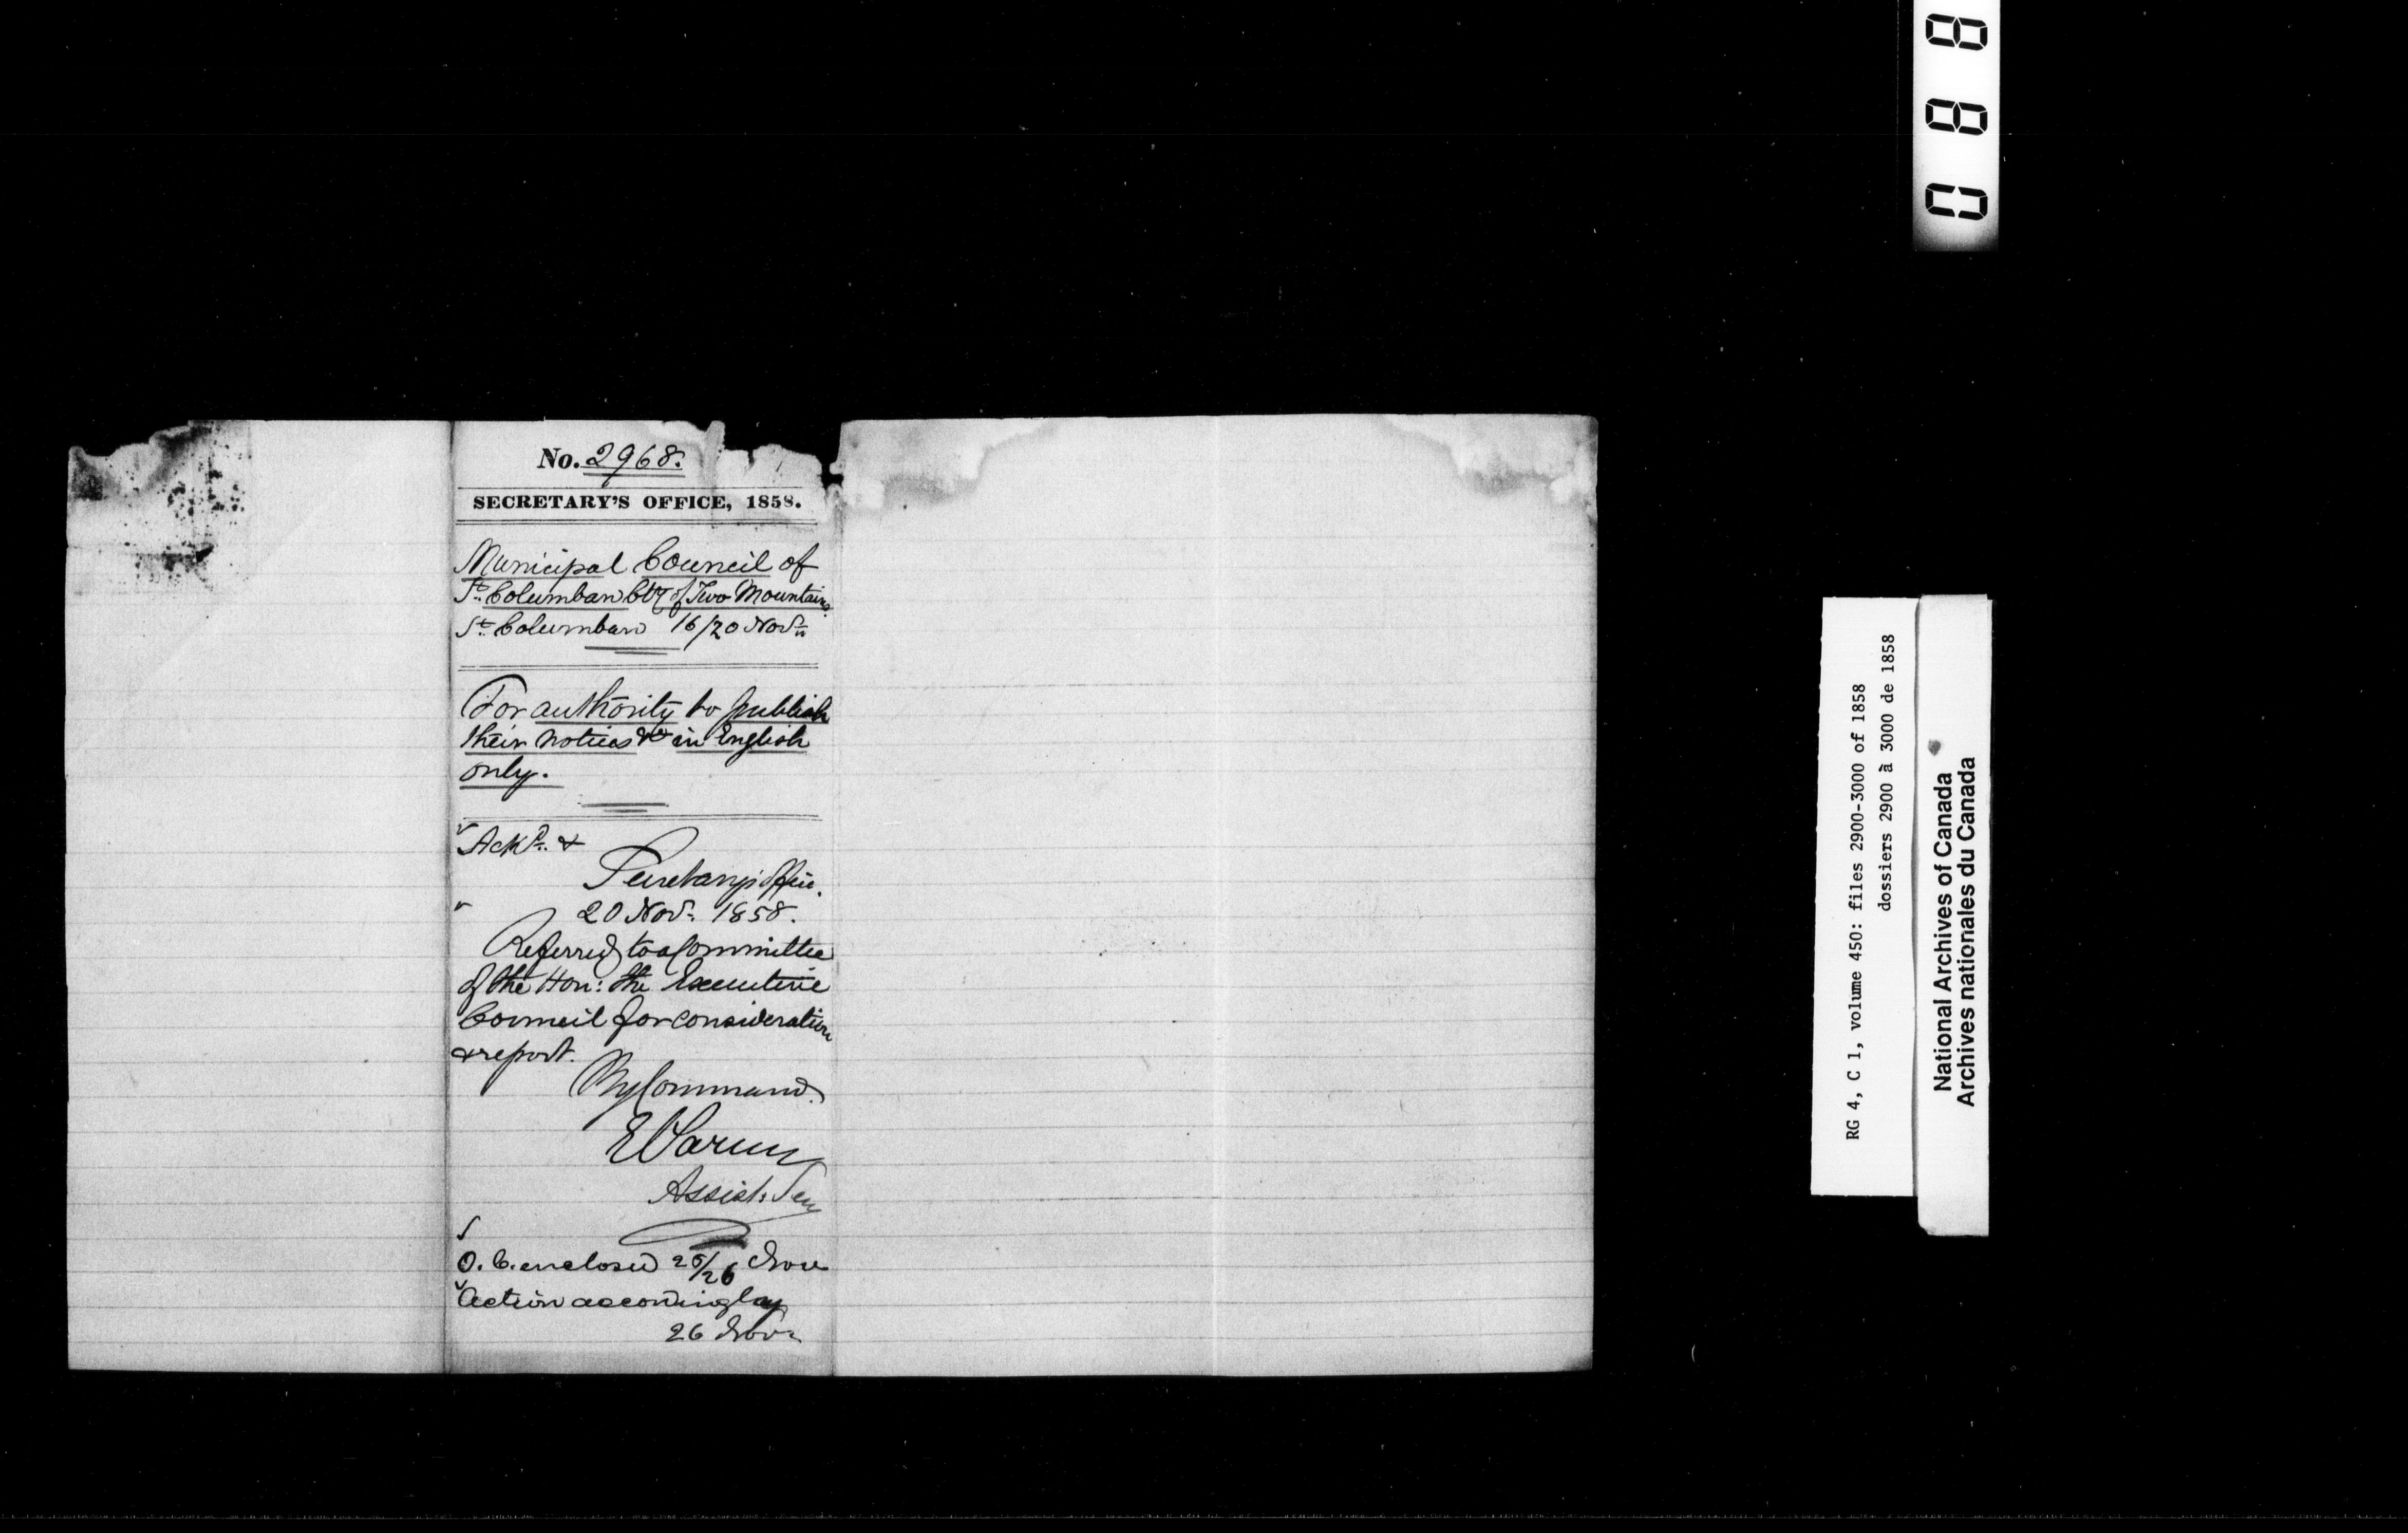 No. 2968.
SECRETARY'S OFFICE, 1858.
Municipal Council of
St. Columban Cty of Two Mountains
St. Columban 16/20 Novr
For authority to publish
their notices &c in English
only.
Ackd. &
Secretary's Office.
20 Nov. 1858.
Referred to a Committee
of the Hon: the Executive
Council for consideration
& report.
By Command.
Assist: Secy
O. C. enclosed 25/26 Nov
Action accordingly
26 Nov
0 8 8
RG 4, C 1, volume 450: files 2900-3000 of 1858
dossiers 2900 à 3000 de 1858
National Archives of Canada
Archives nationales du Canada